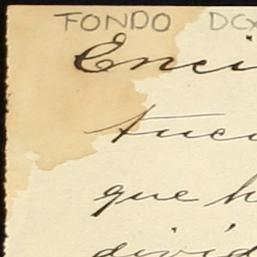 FONDO DCX
Enci
tuca
que h
divid